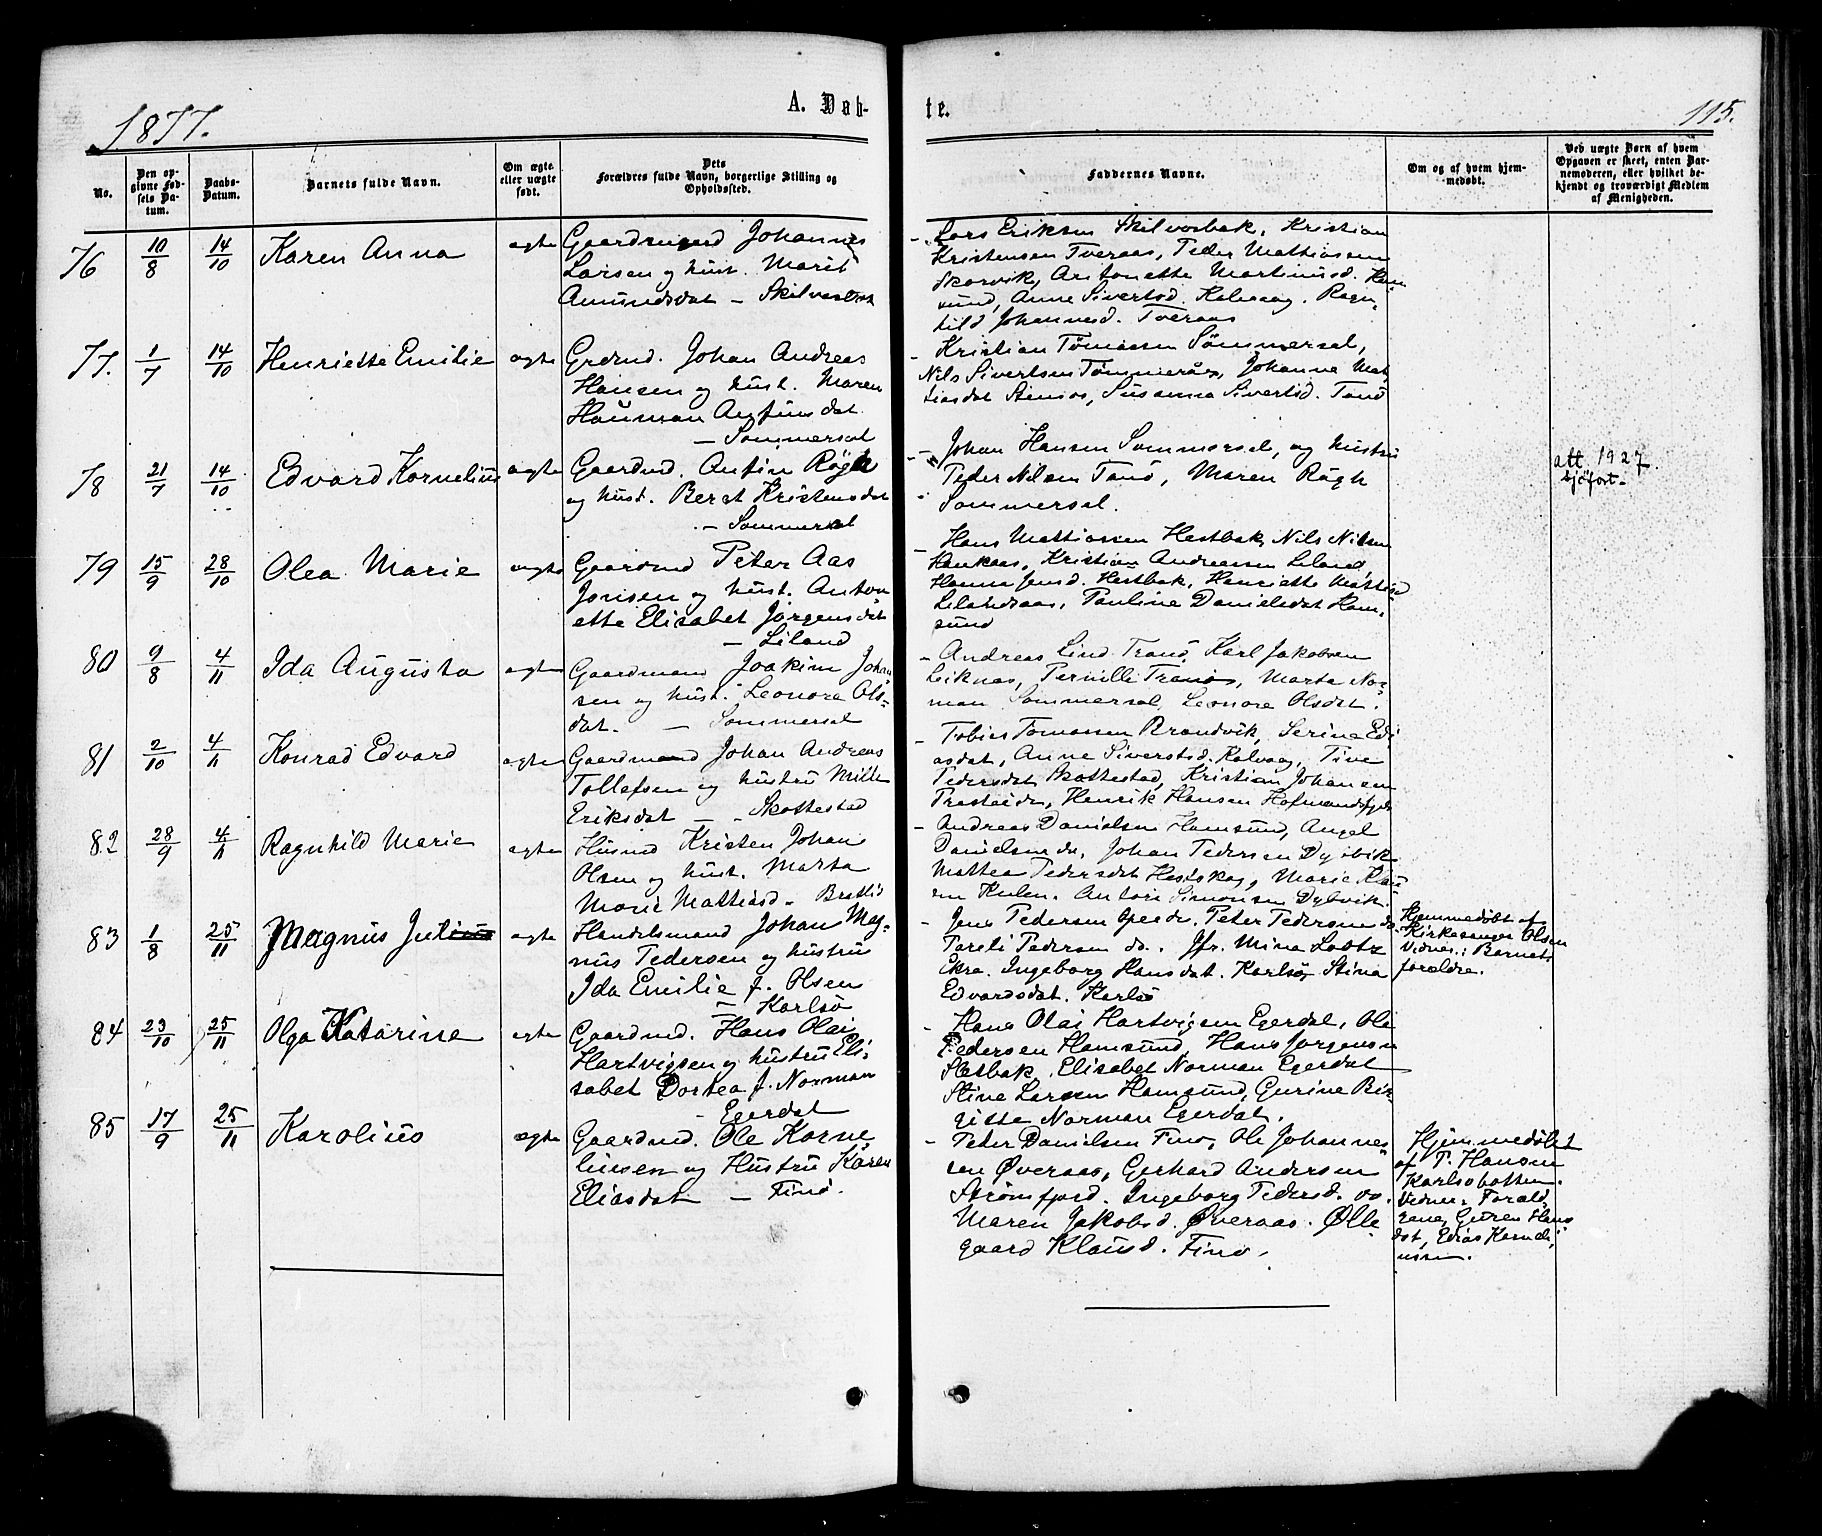 1877.
A. Døb-
te.
115.
No.
Den op-
givne Fød-
sels Da-
tum.
Daabs-
Datum.
Barnets fulde Navn.
Om ægte
eller uægte
født.
Dets
Forældres fulde Navn, borgerlige Stilling og
Opholdssted.
Faddernes Navne.
Om og af hvem hjem-
medøbt.
Ved uægte Børn af hvem
Opgaven er skeet, enten Bar-
nemoderen, eller hvilket be-
kjendt og troværdigt Medlem
af Menigheden.
76 10/8 14/10 Karen Anna ægte
Johannes
Larsen og hust. Marit
Amundsdat —
Lars Eriksen Skilvasbak, Kristian
Kristensen Tveraas, Peder Mattiassen
Skarvik, Antonette Martinusd. Ham
sund, Anne Sivertsd. Kalvaag. Ragn
hild Johannesd. Tveraas
77. 1/7 14/10 Henriette Emilie ægte
Grdmd. Johan Andreas
Hansen og hust. Maren
Hauman Anfinsdat
— Sommersel
- Kristian Tømasen Sømmersel,
Nils Sivertsen, Johanne Mat
tiasdat, Susanna Sivertsd. Tanø
78 21/7 14/10 Edvard Kornelius ægte
Gaardmd. Anfin Røgh
og hust. Beret Kristensdat
- Sommersel
- Johan Hansen Sommersel, og hustru
Peder Nilsen Tanø, Maren Røgh
Sommersel.
att 1927.
sjøfart-
79 15/9 28/10 Olea Marie ægte
Gaardmd Peter Aas
Jonsen og hust. Anton
ette Elisabet Jørgensdat
— Liland
- Hans Mattiassen Hestbak, Nils Nilsen
Kristian Andreassen Liland,
Hanna Jensd. Hestbak, Henriette Mattisd
Lilandsaas, Pauline Danielsdat Ham-
sund
80 9/8 4/11 Ida Augusta ægte
Gaardmand Joakim Johan
sen og hust. Leonora Ols-
dat. — Sommersel
- Andreas Lind Tranø, Karl Jakobsen
Leiknes, Pernille Tranø, Marta Nor-
man Sommersel, Leonore Olsdat.
81 2/10 4/11 Konrad Edvard ægte
Gaardmand Johan Andreas
Tollefsen og hustru Mille
Eriksdat — Skottestad
- Tobias Tomassen Brandvik, Serina Edi
asdat, Anne Siverstsd. Kalvaag, Tine
Pedersdat Skottestad, Kristian Johansen
Presteide, Henrik Hansen Hafmandsfjeld
82 28/9 4/11 Ragnhild Marie ægte
Husmd Kristen Johan
Olsen og hust. Marta
Marie Mattiasd -
- Andreas Danielsen Hamsund, Angel
Danielsen do, Johan Pedersen Dybvik
Mattea Pedersdat Hestskog, Marie
Antoni Simonsen Dybvik.
83 1/8 25/11 Magnus Julius ægte
Handelsmand Johan Mag-
nus Pedersen og hustru
Ida Emilie f. Olsen
— Karlsø
- Jens Pedersen, Peter Pedersen do
Pareli Pedersen do. Jfr. Mina Lootz
Ekre. Ingeborg Hansdat. Karlsø, Stina
Edvardsdat. Karlsø
Hjemmedøbt af
Kirkesanger Olsen
Vidner: Barnets
forældre.
84 23/10 25/11 Olga Katarine ægte
Gaardmd. Hans Olai
Hartvigsen og hustru Eli-
sabet Dortea f. Norman
- Egerdal
- Hans Olai Hartvigsen Egerdal, Ole
Pedersen Hamsund, Hans Jørgensen
Elisabet Norman Egerdal
Stine Larsen Hamsund, Gurine Bir-
gitte Norman Egerdal.
85 17/9 25/11 Karolius ægte
Gaardmd. Ole Korne
liussen og Hustru Karen
Eliasdat — Finø.
- Peter Danielsen Finø, Ole Johannes
sen Øveraas, Gerhard Andersen
Strømfjord. Ingeborg Pedersd. oo.
Maren Jakobsd. Øveraas. Olle
gaard Klausd. Finø.
Hjemmedøbt
af P. Hansen
Karlsøbotten.
Vidner: Foræld
rene, Guren Hans
dat, Edias Korneli
ussen.